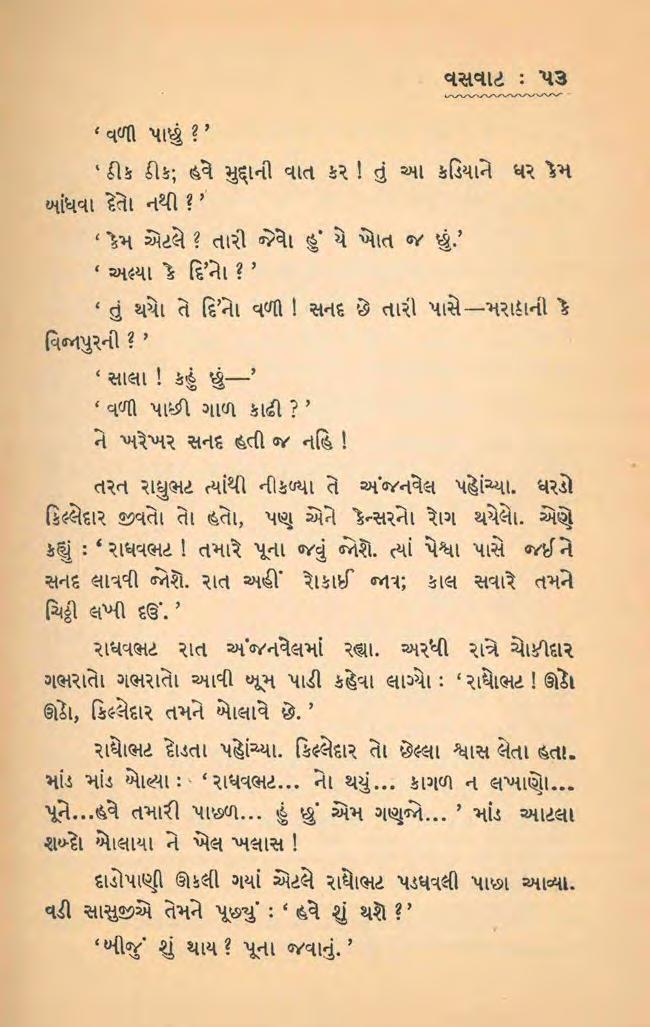 વસવાટ : ૫૩
‘ વળી પાછું ? ’
‘ ઠીક ઠીક; હવે મુદ્દાની વાત કર ! તું આ કડિયાને ઘર કેમ
બાંધવા દેતો નથી ? ’
‘ કેમ એટલે ? તારી જેવો હું યે ખોત જ છું.’
‘ અલ્યા કે દિ’નો ? ’
‘ તું થયો તે દિ’નો વળી ! સનદ છે તારી પાસે—મરાઠાની કે
વિજાપુરની ? ’
‘ સાલા ! કહું છું—’
‘ વળી પાછી ગાળ કાઢી ? ’
ને ખરેખર સનદ હતી જ નહિ !
તરત રાઘુભટ ત્યાંથી નીકળ્યા તે અંજનવેલ પહોંચ્યા. ઘરડો
કિલ્લેદાર જીવતો તો હતો, પણ એને કેન્સરનો રોગ થયેલો. એણે
કહ્યું : ‘ રાઘવભટ ! તમારે પૂના જવું જોશે. ત્યાં પેશ્વા પાસે જઈને
સનદ લાવવી જોશે. રાત અહીં રોકાઈ જાવ; કાલ સવારે તમને
ચિઠ્ઠી લખી દઉં. ’
રાઘવભટ રાત અંજનવેલમાં રહ્યા. અરધી રાત્રે ચોકીદાર
ગભરાતો ગભરાતો આવી બૂમ પાડી કહેવા લાગ્યો : ‘ રાઘોભટ ! ઊઠો
ઊઠો, કિલ્લેદાર તમને બોલાવે છે. ’
રાઘોભટ દોડતા પહોંચ્યા. કિલ્લેદાર તો છેલ્લા શ્વાસ લેતા હતા.
માંડ માંડ બોલ્યા : ‘ રાઘવભટ... નો થયું... કાગળ ન લખાણો...
પૂને...હવે તમારી પાછળ... હું છું એમ ગણજો... ’ માંડ આટલા
શબ્દો બોલાયા ને ખેલ ખલાસ !
દાડોપાણી ઊકલી ગયાં એટલે રાઘોભટ પડઘવલી પાછા આવ્યા.
વડી સાસુજીએ તેમને પૂછ્યું : ‘ હવે શું થશે ?’
‘બીજું શું થાય ? પૂના જવાનું. ’